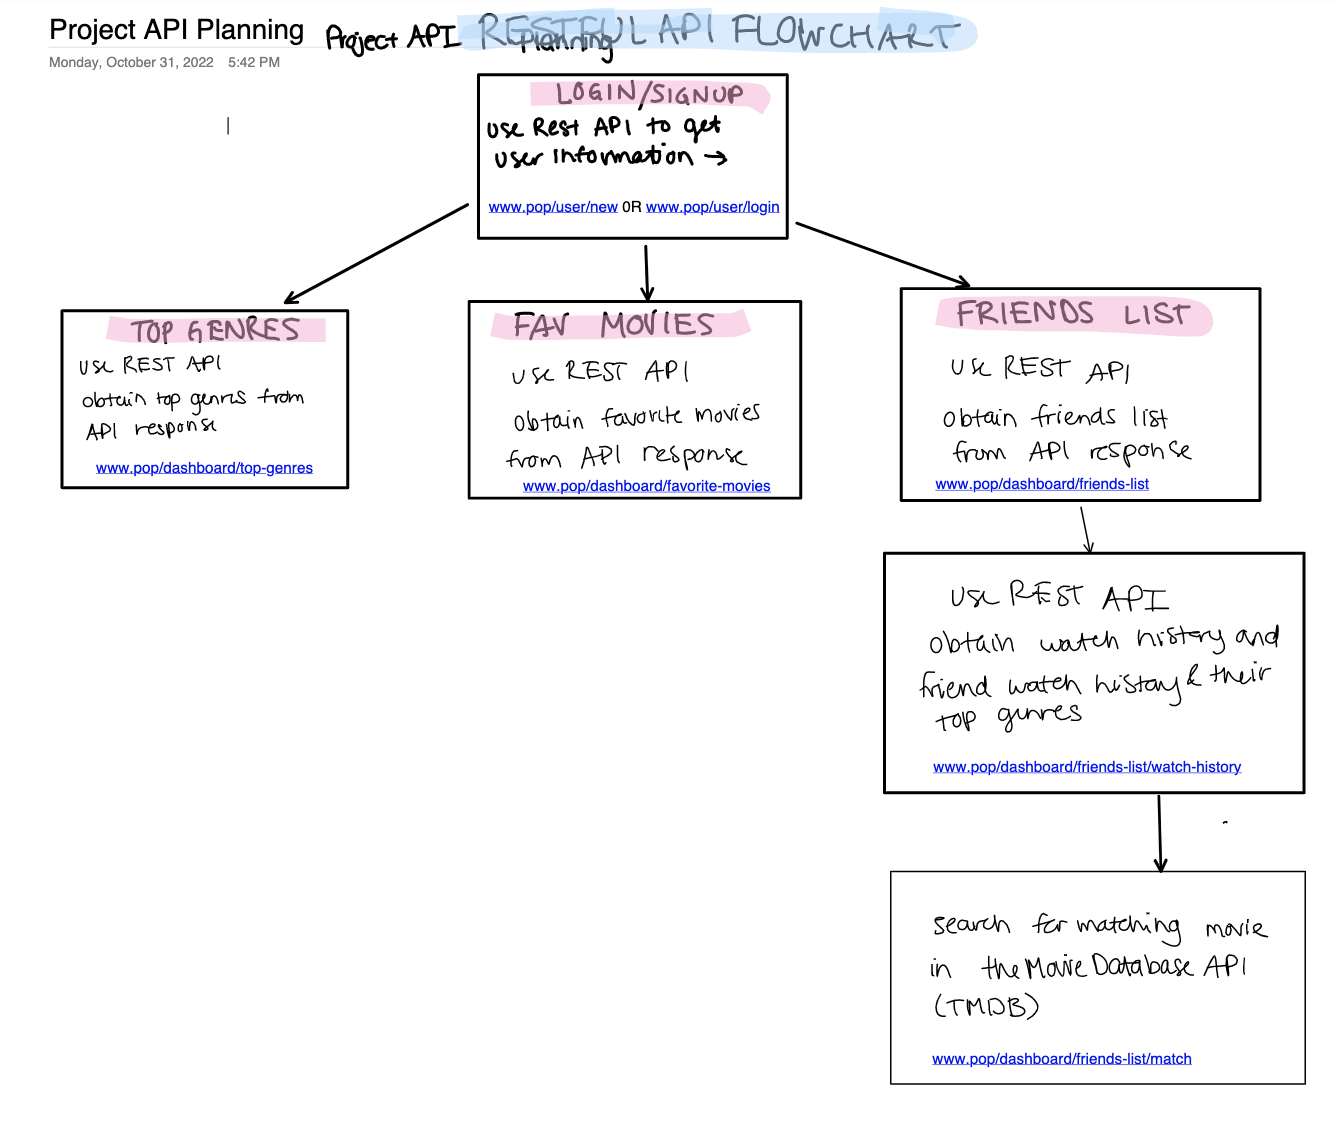 Project API Planning
Project API Planning
RESTFUL API FLOWCHART
Monday, October 31, 2022 5:42 PM
LOGIN/SIGNUP
use Rest API to get
user information →
www.pop/user/new OR www.pop/user/login
TOP GENRES
use REST API
obtain top genres from
API response
www.pop/dashboard/top-genres
FAV MOVIES
use REST API
obtain favorite movies
from API response
www.pop/dashboard/favorite-movies
FRIENDS LIST
use REST API
obtain friends list
from API response
www.pop/dashboard/friends-list
use REST API
obtain watch history and
friend watch history & their
top genres
www.pop/dashboard/friends-list/watch-history
search for matching movie
in the Movie Database API
(TMDB)
www.pop/dashboard/friends-list/match